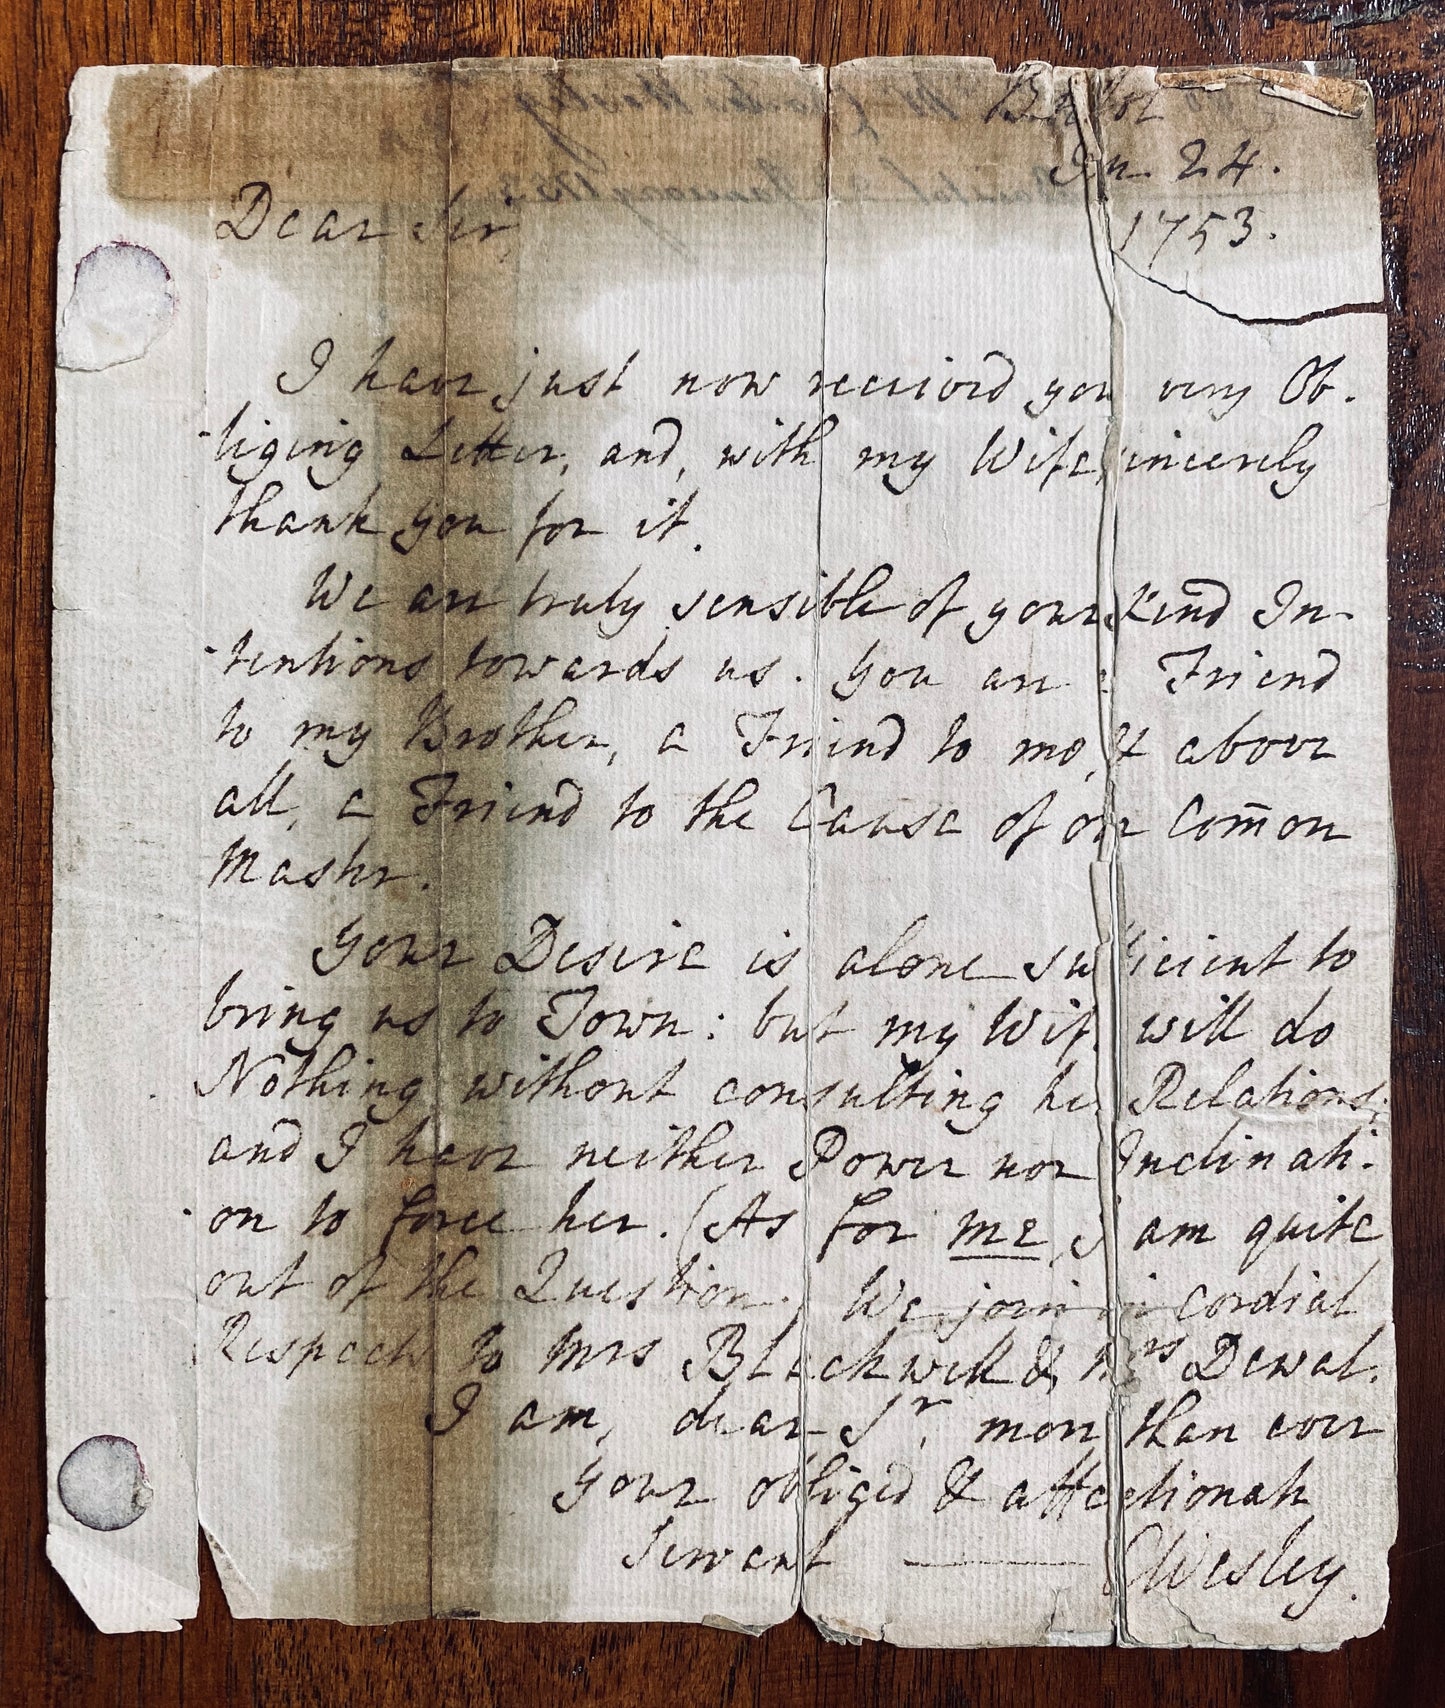 Bristol
Jan. 24.
1753.
Dear Sir
I have just now received you very Ob-
-liging Letter, and, with my Wife, sincerely
thank you for it.
We are truly sensible of your kind In-
-tentions towards us. You are a Friend
to my Brother, a Friend to me, & above
all, a Friend to the Cause of our Com̄on
Master.
Your Desire is alone sufficient to
bring us to Town: but my Wife will do
Nothing without consulting her Relations;
and I have neither Power nor Inclinati-
on to force her. (As for me, I am quite
out of the Question. We join in cordial
Respects to Mrs Blackwell & Mrs Dewal.
I am, dear Sr, more than ever
Your obliged & affectionate
Servant — CWesley.